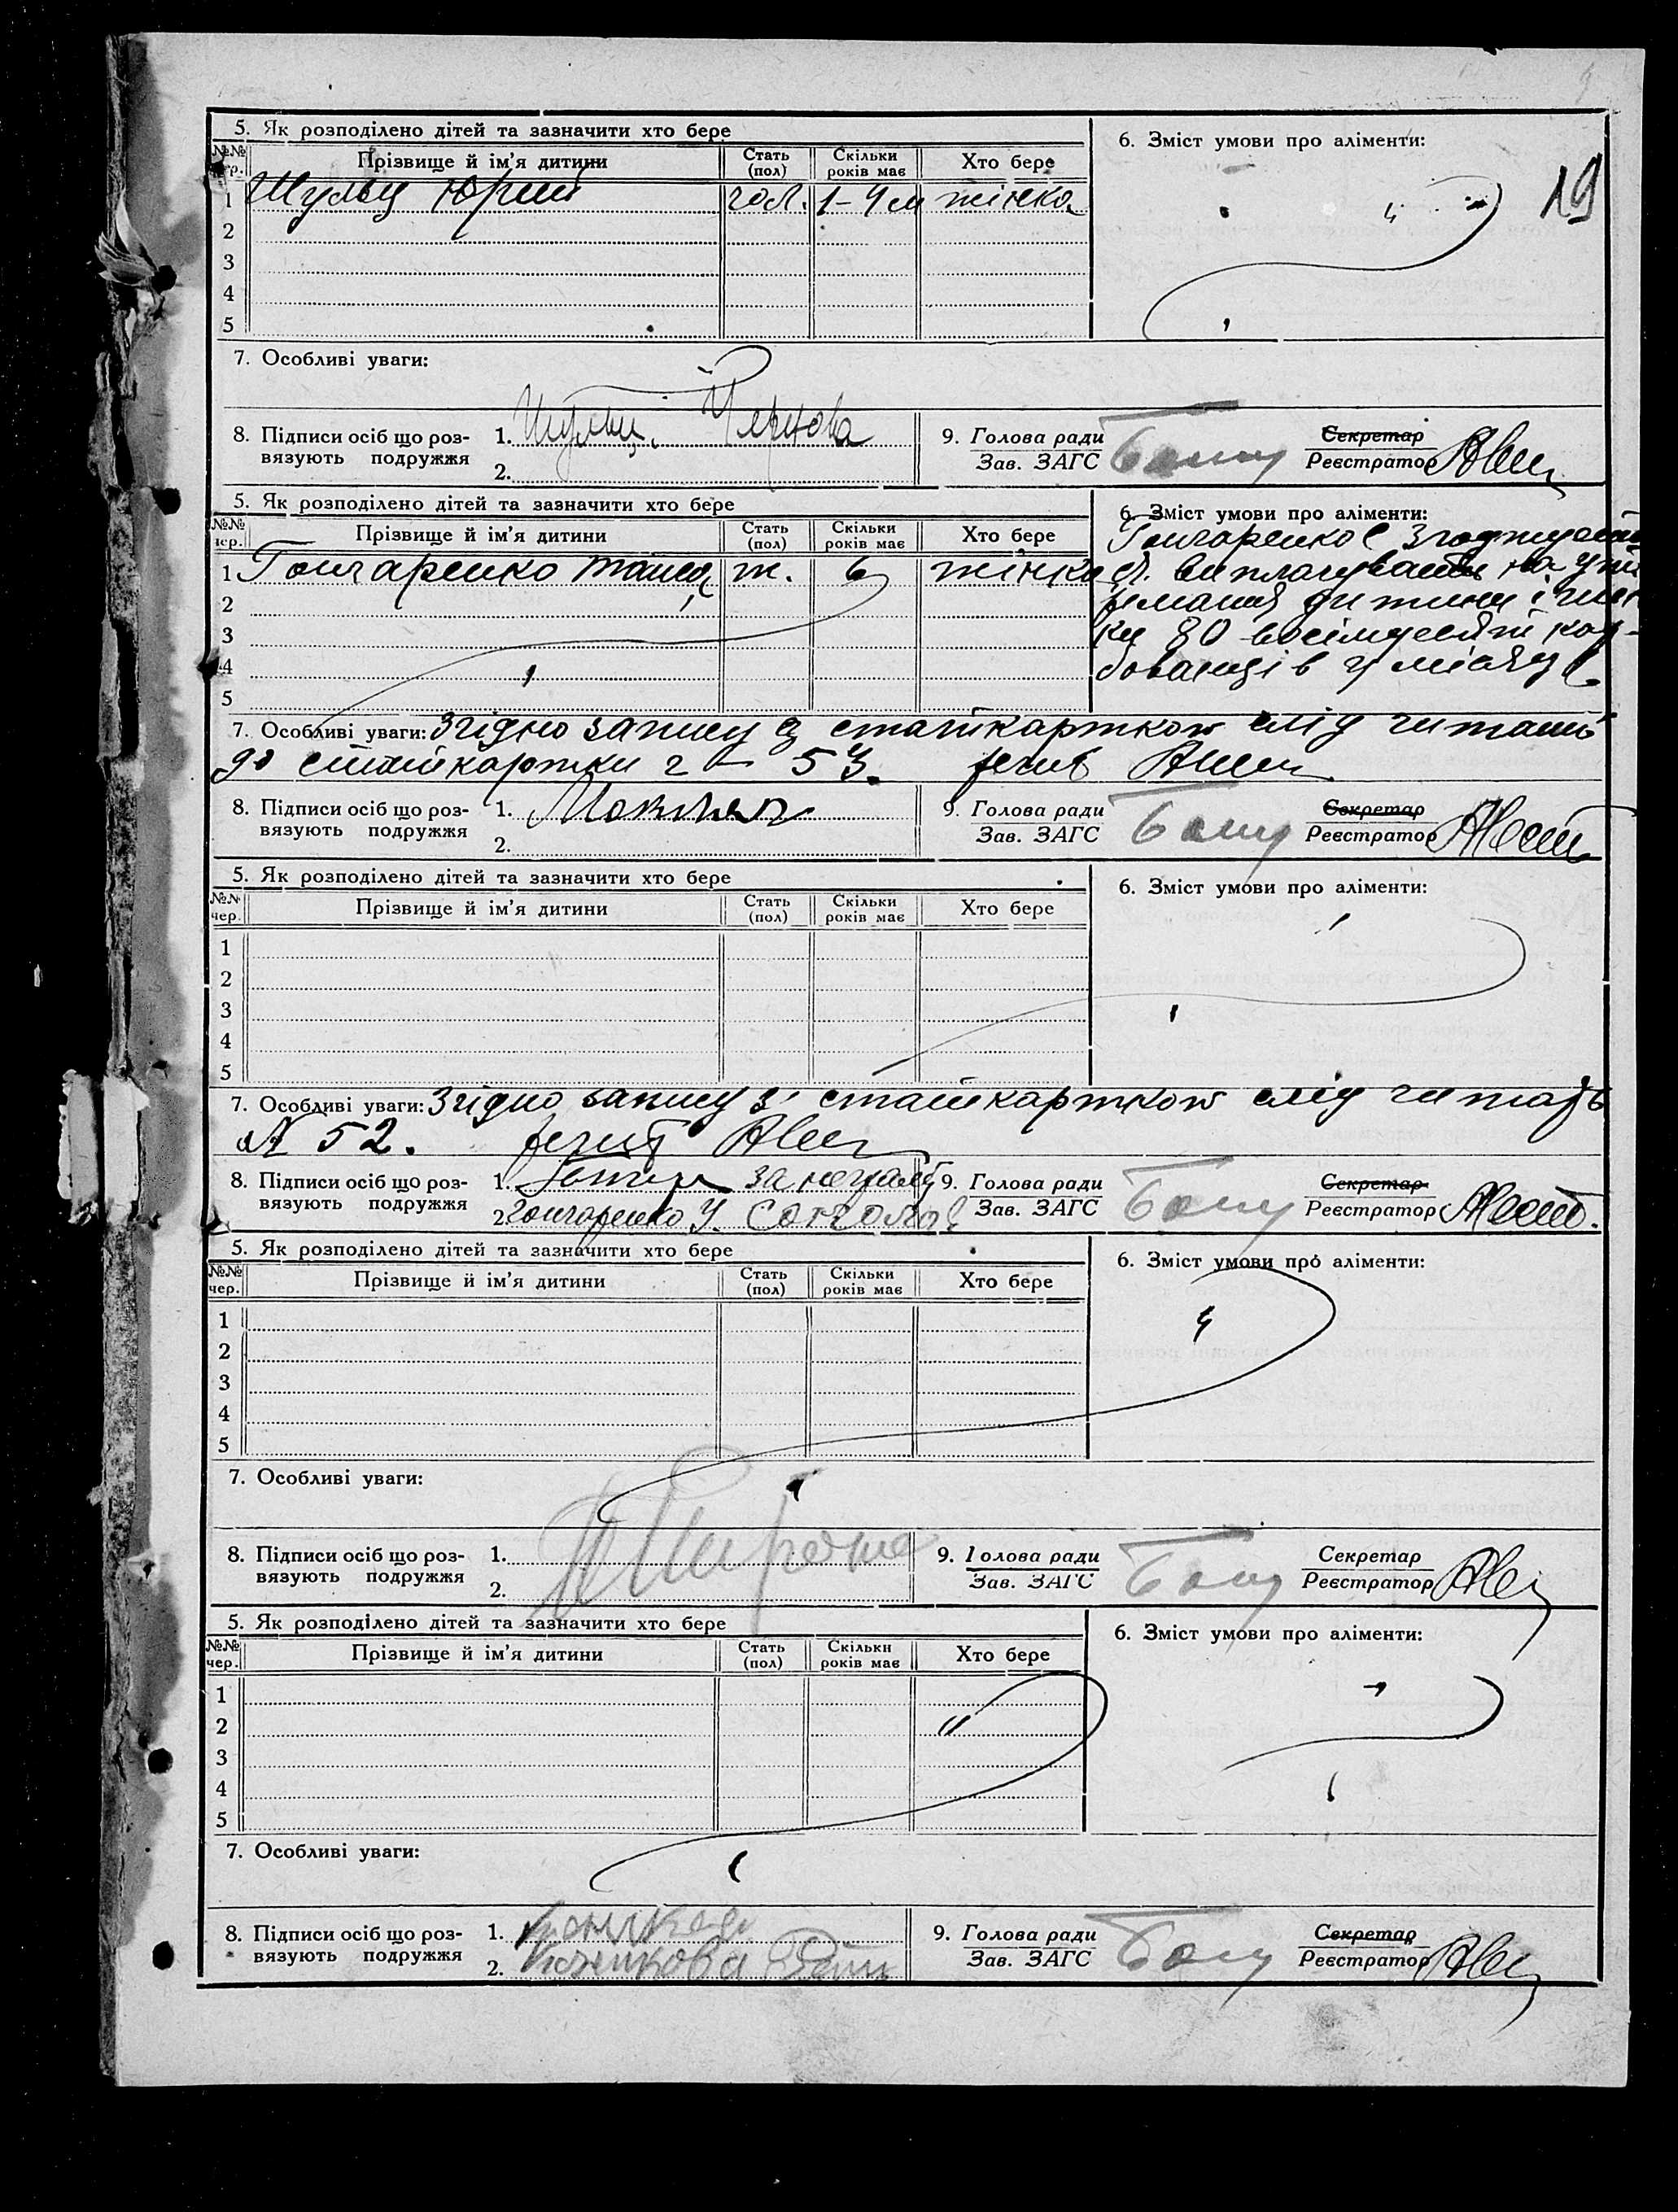 19
5. Як розподілено дітей та зазначити хто бере
6. Зміст умови про аліменти:
Прізвище й ім'я дитини Стать (пол) Скільки років має Хто бере
1 Шульц Юрий чол. 1-4 м жінка
2
3
4
5
7. Особливі уваги:
8. Підписи осіб що роз-
вязують подружжя
1. Шульц. Чернова
2.
9. Голова ради
Зав. ЗАГС
Секретар
Реєстратор
5. Як розподілено дітей та зазначити хто бере
6. Зміст умови про аліменти:
№№ чер. Прізвище й ім'я дитини Стать (пол) Скільки років має Хто бере
1 Гончаренко Таіса ж. 6 жінка
2
3
4
5
Гончаренко Є згоджуєть
ся виплачувати на ут
римання дитини і жін
ки 80 восімдесят кар-
бованців у місяць
7. Особливі уваги: Згідно запису з статкарткою слід читать
до статкартки 2 - 53.
8. Підписи осіб що роз-
вязують подружжя
1.
2.
9. Голова ради
Зав. ЗАГС
Секретар
Реєстратор
5. Як розподілено дітей та зазначити хто бере
6. Зміст умови про аліменти:
№№ чер. Прізвище й ім'я дитини Стать (пол) Скільки років має Хто бере
1
2
3
4
5
7. Особливі уваги: Згідно запису з статкарткою слід читать
№ 52.
8. Підписи осіб що роз-
вязують подружжя
1. за неграм
2. Гончаренко У.
9. Голова ради
Зав. ЗАГС
Секретар
Реєстратор
5. Як розподілено дітей та зазначити хто бере
6. Зміст умови про аліменти:
№№ чер. Прізвище й ім'я дитини Стать (пол) Скільки років має Хто бере
1
2
3
4
5
7. Особливі уваги:
8. Підписи осіб що роз-
вязують подружжя
1.
2.
9. Голова ради
Зав. ЗАГС
Секретар
Реєстратор
5. Як розподілено дітей та зазначити хто бере
6. Зміст умови про аліменти:
№№ чер. Прізвище й ім'я дитини Стать (пол) Скільки років має Хто бере
1
2
3
4
5
7. Особливі уваги:
8. Підписи осіб що роз-
вязують подружжя
1.
2.
9. Голова ради
Зав. ЗАГС
Секретар
Реєстратор